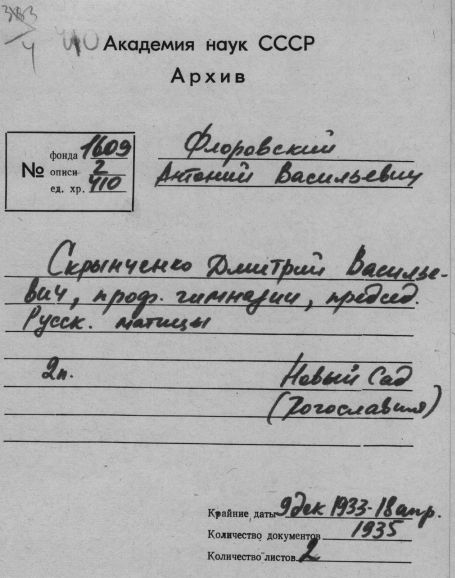 383/4
410
Академия наук СССР
Архив
№
фонда 1609
описи 2
ед. хр. 410
Флоровский
Антоний Васильевич
Скрынченко Дмитрий Василье-
вич, проф. гимназии, председ.
Русск. матицы
2п.
Новый Сад
(Югославия)
Крайние даты 9 дек 1933-18 апр.
Количество документов 1935
Количество листов 2